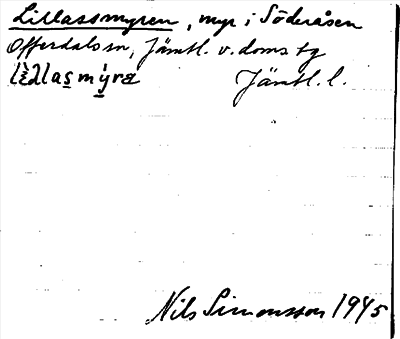 Lillassmyren, myr i Söderåsen
Offerdals sn, Jämtl. v. doms tg
Jämtl. l.
Nils Simonsson 1945